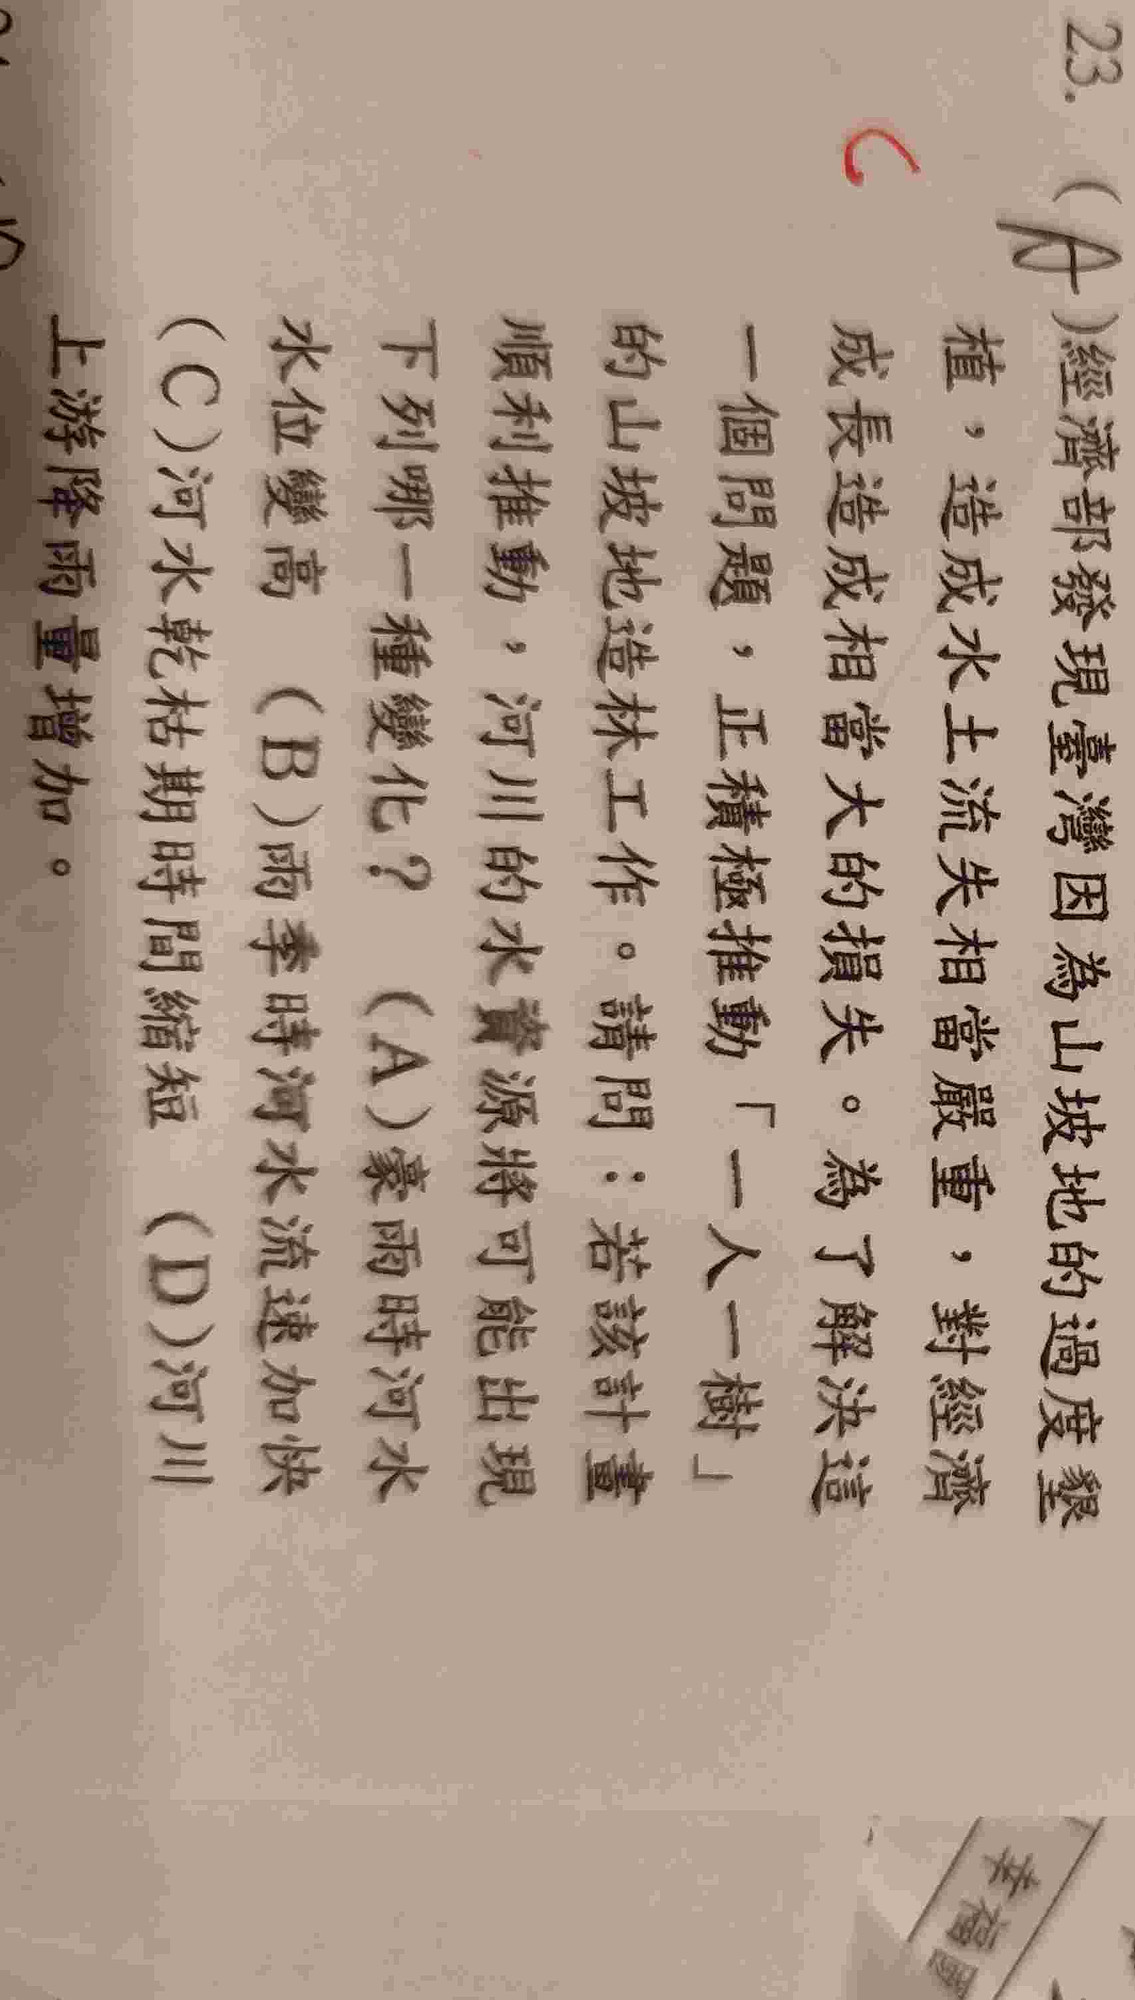 23. (A)經濟部發現臺灣因為山坡地的過度墾
植，造成水土流失相當嚴重，對經濟
成長造成相當大的損失。為了解決這
C
一個問題，正積極推動「一人一樹」
的山坡地造林工作。請問：若該計畫
順利推動，河川的水資源將可能出現
下列哪一種變化？ (A)豪雨時河水
水位變高 (B)雨季時河水流速加快
(C)河水乾枯期時間縮短 (D)河川
上游降雨量增加。
幸福國